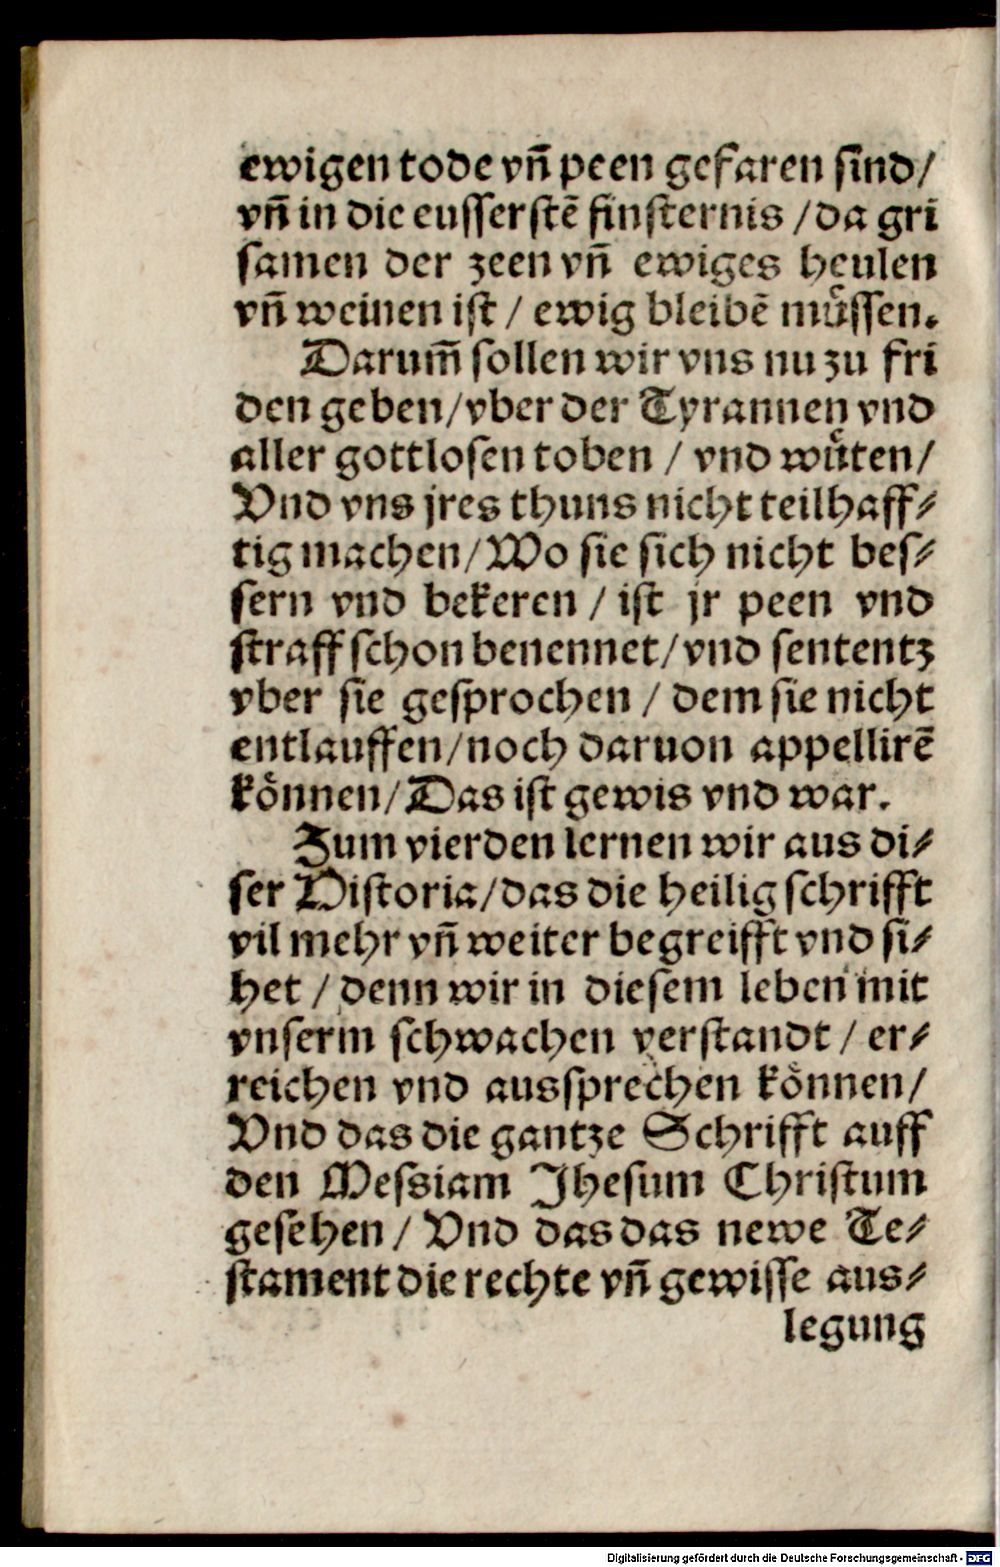 ewigen tode vn̄ peen gefaren ſind/
vn̄ in die euſſerſtē finſternis /da gri
ſamen der zeen vn̄ ewiges heulen
vn̄ weinen iſt / ewig bleibē muͤſſen.
Darum̄ ſollen wir vns nu zu fri
den geben/vber der Tyrannen vnd
aller gottloſen toben / vnd wuͤten/
Vnd vns jres thuns nicht teilhaff⸗
tig machen/Wo ſie ſich nicht beſ⸗
ſern vnd bekeren / iſt jr peen vnd
ſtraff ſchon benennet/vnd ſententz
vber ſie geſprochen / dem ſie nicht
entlauffen/noch daruon appellirē
koͤnnen/Das iſt gewis vnd war.
Zum vierden lernen wir aus di⸗
ſer Hiſtoria/das die heilig ſchrifft
vil mehr vn̄ weiter begreifft vnd ſi⸗
het / denn wir in dieſem leben mit
vnſerm ſchwachen verſtandt / er⸗
reichen vnd ausſprechen koͤnnen/
Vnd das die gantze Schrifft auff
den Meſsiam Jheſum Chriſtum
geſehen / Vnd das das newe Te⸗
ſtament die rechte vn̄ gewiſſe aus⸗
legung
Digitalisierung gefördert durch die Deutsche Forschungsgemeinschaft - DFG